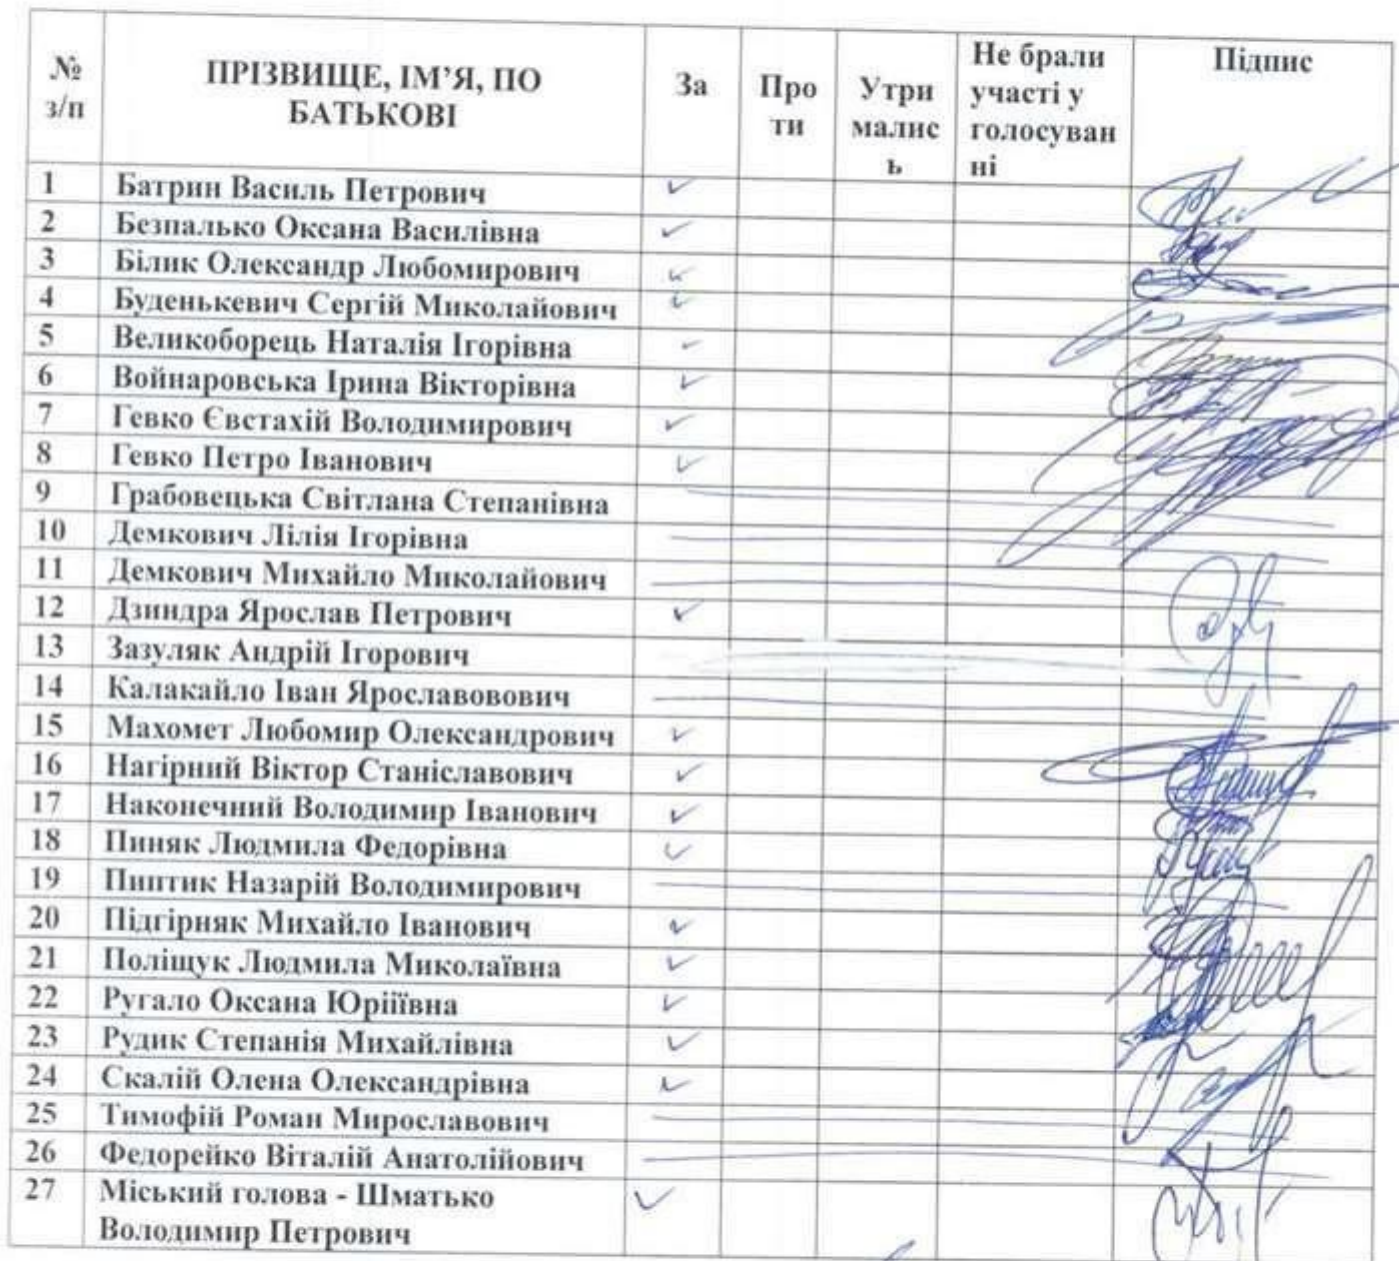 № з/п ПРІЗВИЩЕ, ІМ’Я, ПО БАТЬКОВІ За Про ти Утри малис ь Не брали участі у голосуван ні Підпис
1 Батрин Василь Петрович ✓
2 Безпалько Оксана Василівна ✓
3 Білик Олександр Любомирович ✓
4 Буденькевич Сергій Миколайович ✓
5 Великоборець Наталія Ігорівна ✓
6 Войнаровська Ірина Вікторівна ✓
7 Гевко Євстахій Володимирович ✓
8 Гевко Петро Іванович ✓
9 Грабовецька Світлана Степанівна
10 Демкович Лілія Ігорівна
11 Демкович Михайло Миколайович
12 Дзиндра Ярослав Петрович ✓
13 Зазуляк Андрій Ігорович
14 Калакайло Іван Ярославовович
15 Махомет Любомир Олександрович ✓
16 Нагірний Віктор Станіславович ✓
17 Наконечний Володимир Іванович ✓
18 Пиняк Людмила Федорівна ✓
19 Пиптик Назарій Володимирович
20 Підгірняк Михайло Іванович ✓
21 Поліщук Людмила Миколаївна ✓
22 Ругало Оксана Юріїївна ✓
23 Рудик Степанія Михайлівна ✓
24 Скалій Олена Олександрівна ✓
25 Тимофій Роман Мирославович
26 Федорейко Віталій Анатолійович
27 Міський голова - Шматько ✓
Володимир Петрович